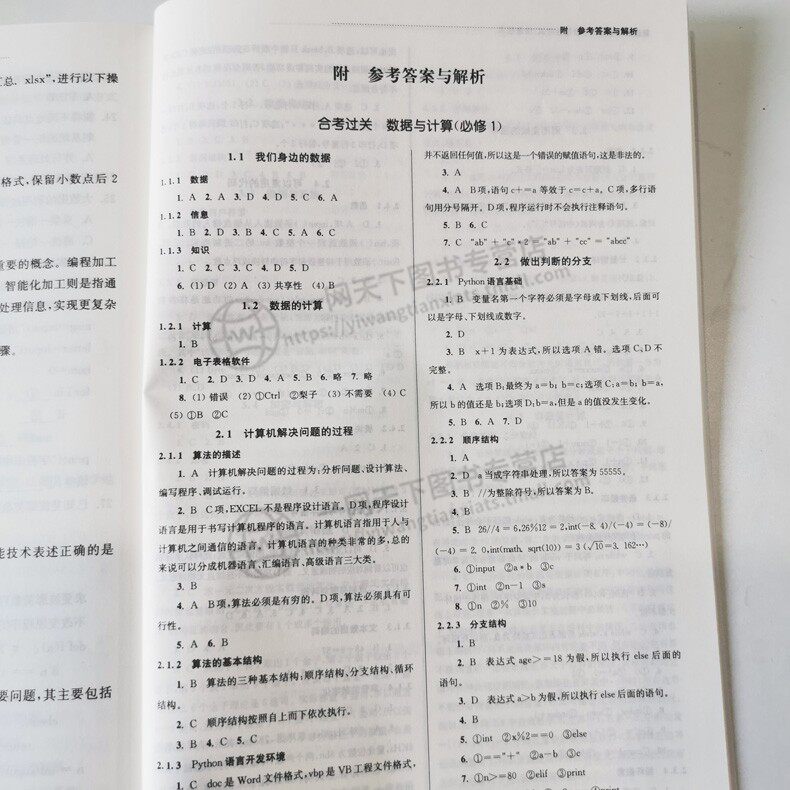 总. xlsx",进行以下操
格式,保留小数点后 2
重要的概念。编程加工
智能化加工则是指通
处理信息,实现更复杂
骤。
能技术表述正确的是
要问题,其主要包括
附 参考答案与解析
附 参考答案与解析
合考过关 数据与计算(必修1)
1.1 我们身边的数据
1.1.1 数据
1. A 2. A 3. A 4. D 5. C 6. A
1.1.2 信息
1. B 2. D 3. B 4. C 5. A 6. C
1.1.3 知识
1. C 2. C 3. C 4. D 5. D
6. (1) D (2) A (3) 共享性 (4) B
1.2 数据的计算
1.2.1 计算
1. B
1.2.2 电子表格软件
1. C 2. D 3. D 4. A 5. B 6. 略 7. 略
8. (1) 错误 (2) ①Ctrl ②梨子 (3) 不需要 (4) C
(5) ①B ②C
2.1 计算机解决问题的过程
2.1.1 算法的描述
1. A 计算机解决问题的过程为:分析问题、设计算法、
编写程序、调试运行。
2. B C项,EXCEL不是程序设计语言。D项,程序设计
语言是用于书写计算机程序的语言。计算机语言指用于人与
计算机之间通信的语言。计算机语言的种类非常的多,总的
来说可以分成机器语言、汇编语言、高级语言三大类。
3. B
4. A B项,算法必须是有穷的。D项,算法必须具有可
行性。
5. A 6. B
2.1.2 算法的基本结构
1. B 算法的三种基本结构:顺序结构、分支结构、循环
结构。
2. C 顺序结构按照自上而下依次执行。
3. B 4. C 5. C
2.1.3 Python语言开发环境
1. C doc是Word文件格式,vbp是VB工程文件格式,
并不返回任何值,所以这是一个错误的赋值语句,这是非法的。
3. A
4. A B项,语句c+=a等效于c=c+a。C项,多行语
句用分号隔开。D项,程序运行时不会执行注释语句。
5. B 6. C
7. C "ab"+"c"*2="ab"+"cc"="abcc"
2.2 做出判断的分支
2.2.1 Python语言基础
1. B 变量名第一个字符必须是字母或下划线,后面可
以是字母、下划线或数字。
2. D
3. B x+1为表达式,所以选项A错。选项C、D不
完整。
4. A 选项B:最终为a=b; 选项C:a=b; b=c,
所以b的值还是b; 选项D:b=a,但是a的值没发生变化。
5. B 6. A 7. D
2.2.2 顺序结构
1. C
2. D a当成字符串处理,所以答案为55555。
3. B //为整除符号,所以答案为B。
4. B
5. B 26//4=6,26%12=2,int(-8,4)/(-4)=(-8)/
(-4)=2.0,int(math. sqrt(10))=3(√10=3. 162…)
6. ①input ②a*b ③c
7. ①int ②n-1 ③s
8. ①n ②% ③10
2.2.3 分支结构
1. B
2. B 表达式age>=18为假,所以执行else后面的
语句。
3. D 表达式a>b为假,所以执行else后面的语句。
4. B
5. ①int ②x%2==0 ③else
6. ①=="+" ②-a ③b-c
7. ①n>=80 ②elif ③print
一网天下图书专营店
https://yiwangtiantiants.tmall.com
一网天下图书专营店